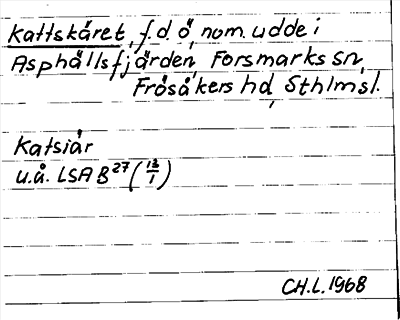 Kattskäret, f.d. ö, num. udde i
Asphällsfjärden, Forsmarks sn,
Frösåkers hd, Sthlms l.
Katsiär
u.å. LSA B²⁷ (13/1)
CH.L. 1968